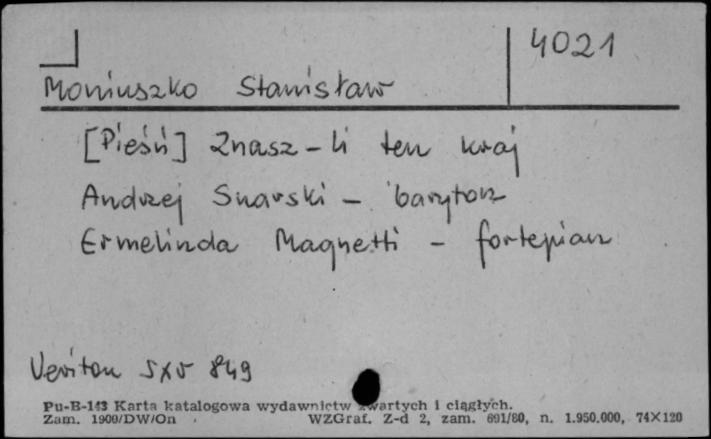 4021
Moniuszko Stanisław
[Pieśń] Znasz-li ten kraj
Andrzej Snarski - baryton
Ermelinda Magnetti - fortepian
Veriton SXV 849
Pu-B-143 Karta katalogowa wydawnictw zwartych i ciągłych.
Zam. 1900/DW/On WZGraf. Z-d 2, zam. 691/80, n. 1.950.000, 74X120